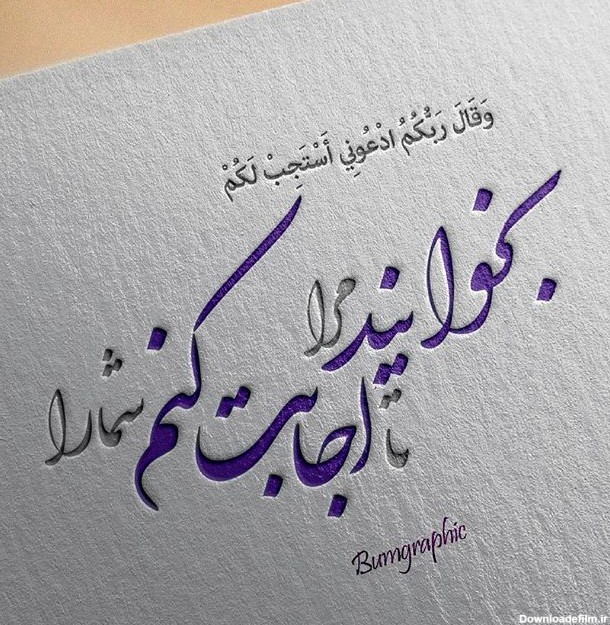 وَقَالَ رَبُّكُمُ ادْعُونِي أَسْتَجِبْ لَكُمْ
بخوانید مرا
تا اجابت کنم شما را
Bumgraphic
Downloadefilm.ir